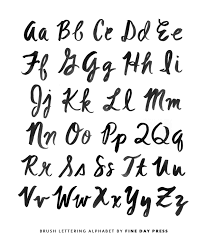 Aa Bb Cc Dd Ee
Ff Gg Hh Ii
Jj Kk Ll Mm
Nn Oo Pp Qq
Rr Ss Ss Tt Uu
Vv Ww Xx Yy Zz
BRUSH LETTERING ALPHABET BY FINE DAY PRESS